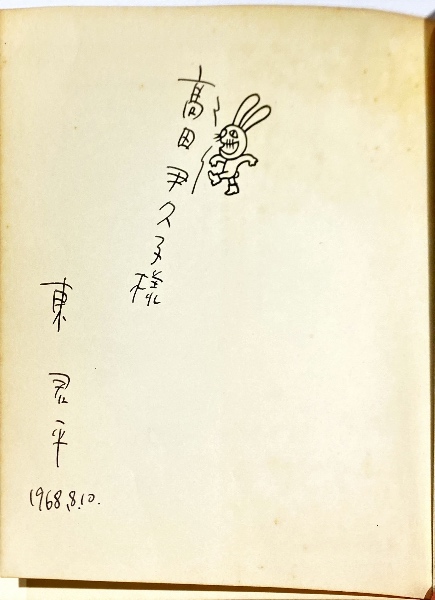 高田尹久子様
東君平
1968.8.10.